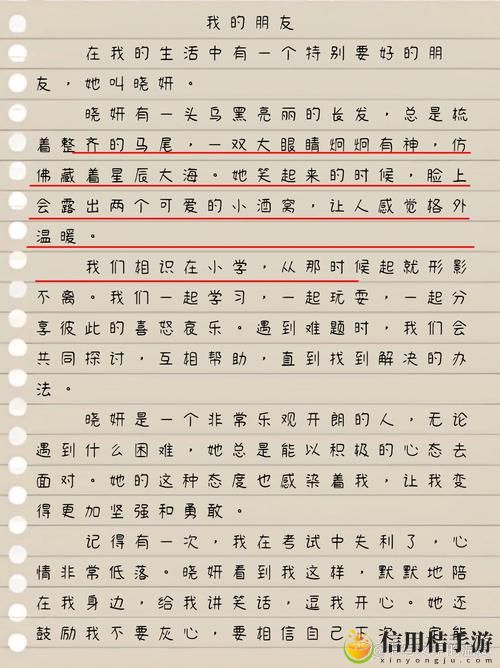 我的朋友
在我的生活中有一个特别要好的朋
友，她叫晓妍。
晓妍有一头乌黑亮丽的长发，总是梳
着整齐的马尾，一双大眼睛炯炯有神，仿
佛藏着星辰大海。她笑起来的时候，脸上
会露出两个可爱的小酒窝，让人感觉格外
温暖。
我们相识在小学，从那时候起就形影
不离。我们一起学习，一起玩耍，一起分
享彼此的喜怒哀乐。遇到难题时，我们会
共同探讨，互相帮助，直到找到解决的办
法。
晓妍是一个非常乐观开朗的人，无论
遇到什么困难，她总是能以积极的心态去
面对。她的这种态度也感染着我，让我变
得更加坚强和勇敢。
记得有一次，我在考试中失利了，心
情非常低落。晓妍看到我这样，默默地陪
在我身边，给我讲笑话，逗我开心。她还
鼓励我不要灰心，要相信自己下次一定能
信用桔手游
xinyongju.com